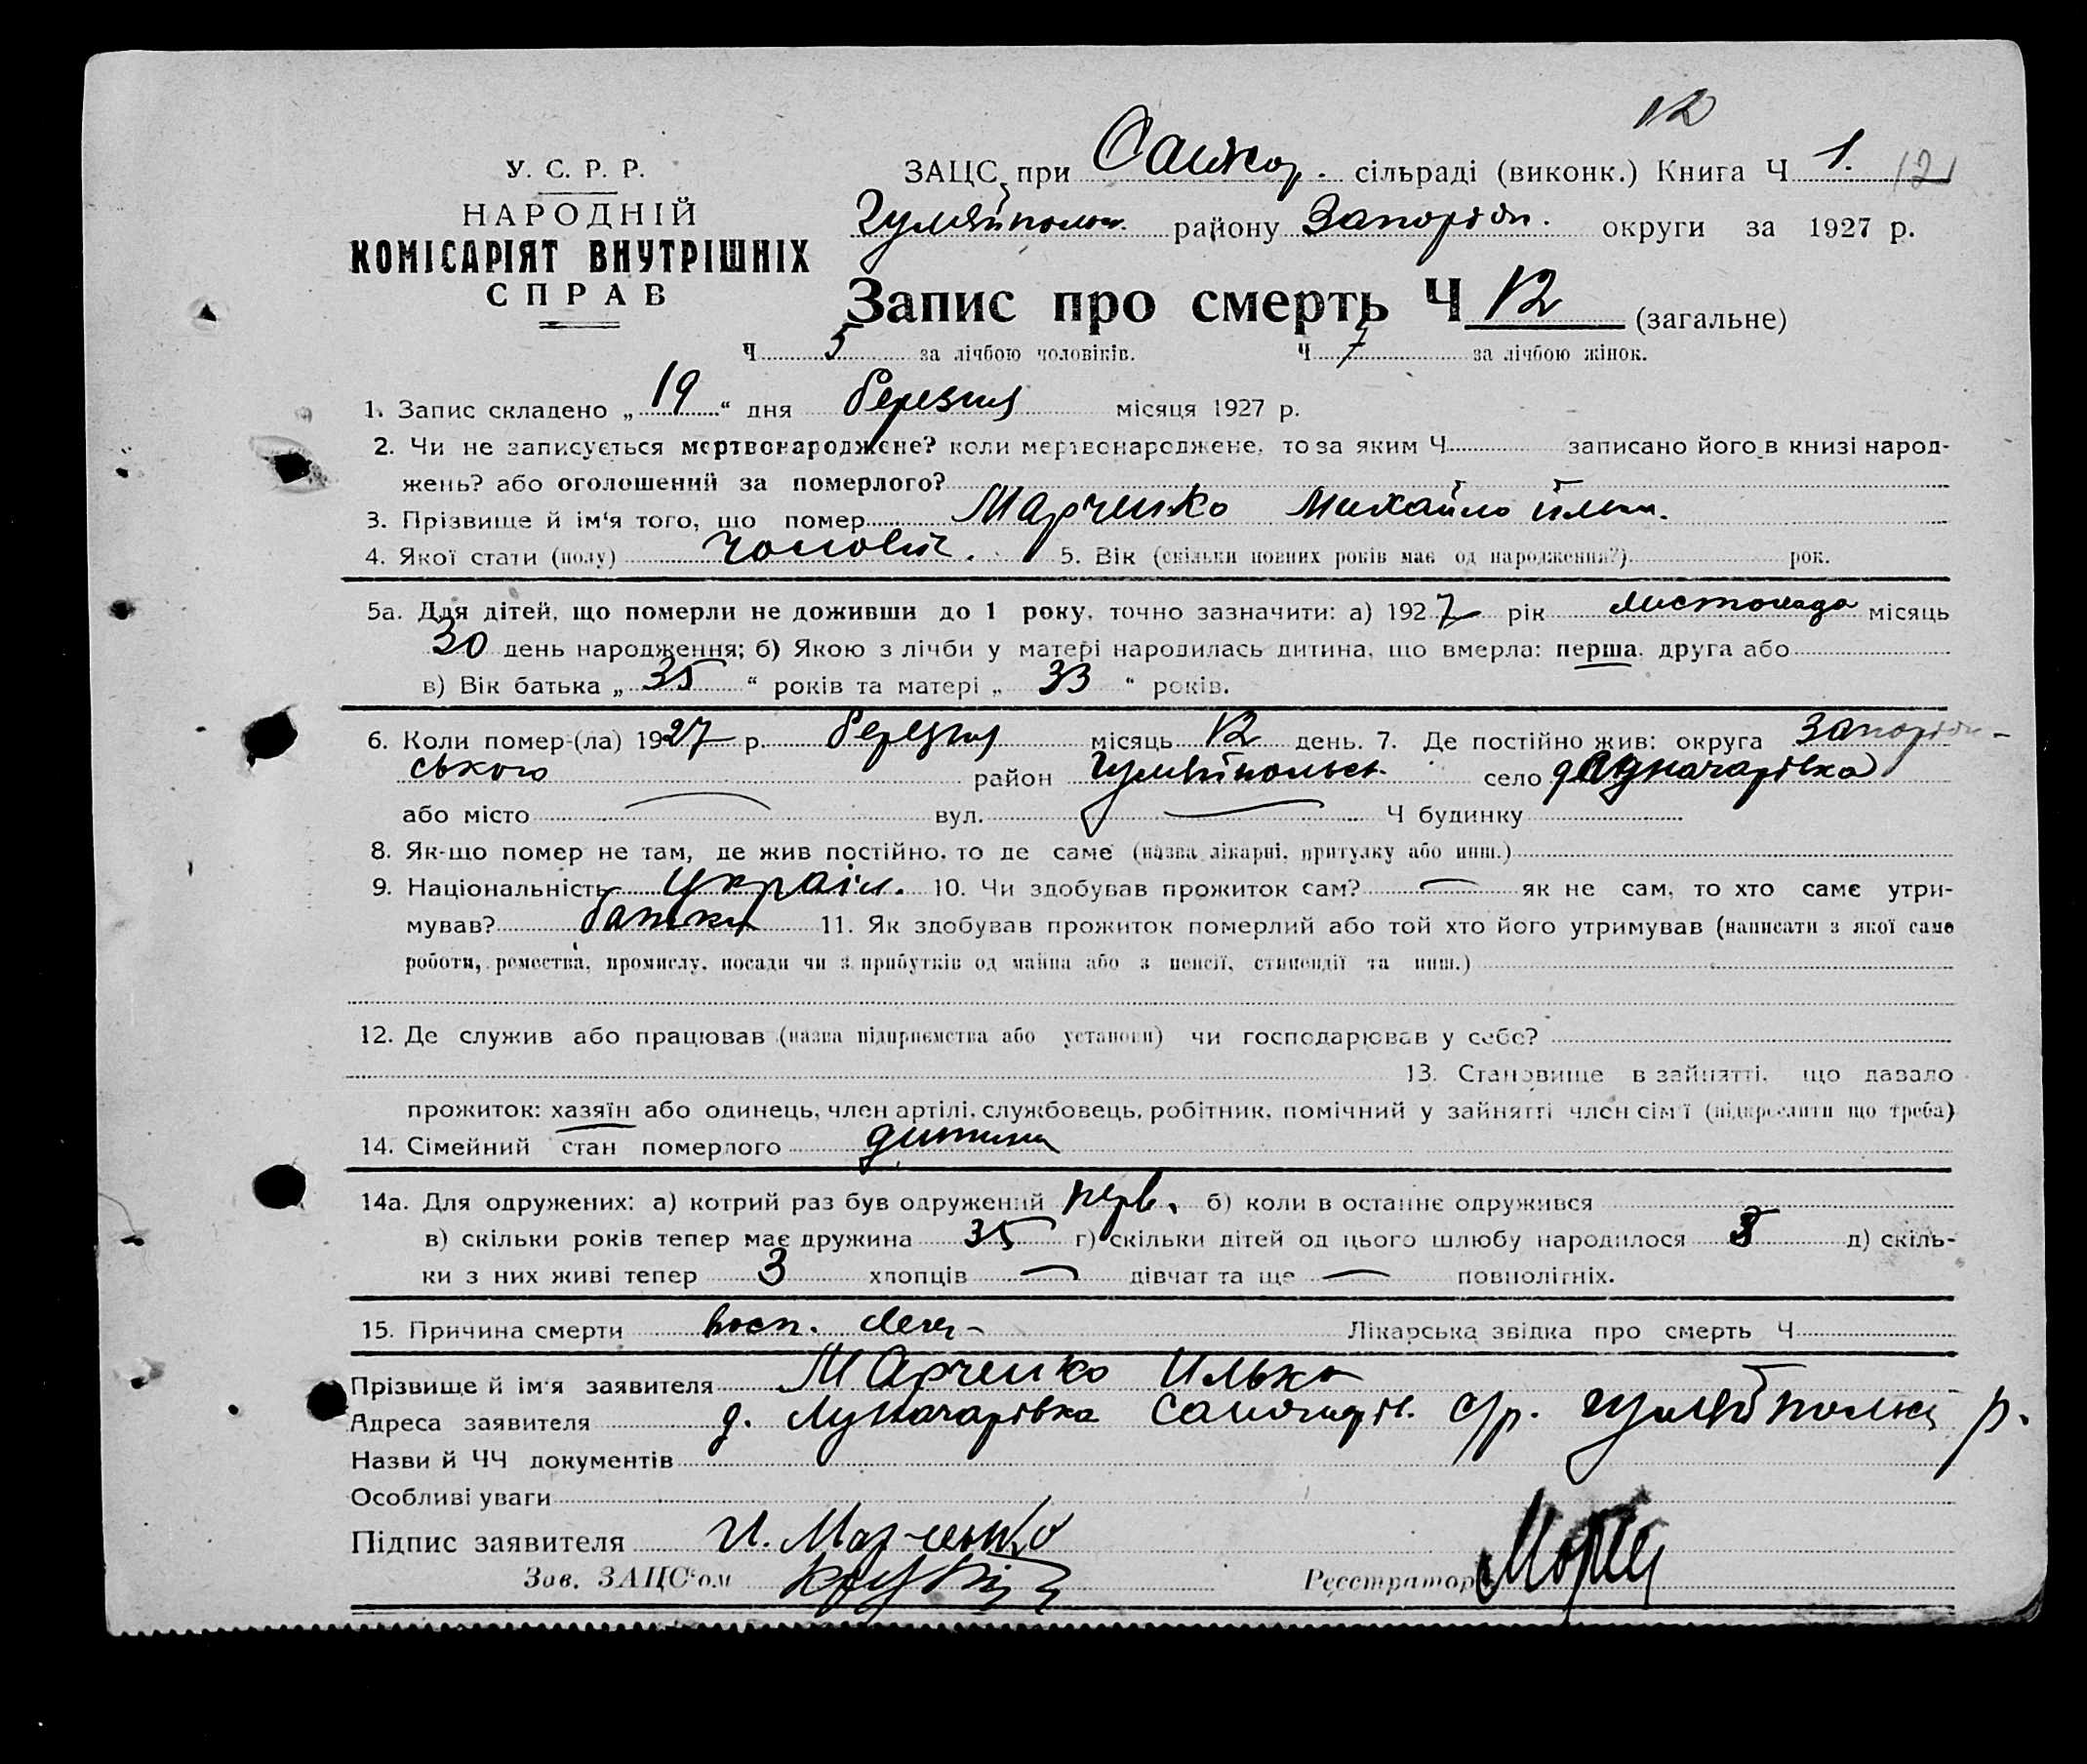 12
У. С. Р. Р.
НАРОДНІЙ
КОМІСАРІЯТ ВНУТРІШНІХ
СПРАВ
ЗАЦС при сільраді (виконк.) Книга Ч 1. 121
району Запоріж. округи за 1927 р.
Запис про смерть Ч 12 (загальне)
Ч 5 за лічбою чоловіків. Ч 7 за лічбою жінок.
1. Запис складено „ 19 “ дня березня місяця 1927 р.
2. Чи не записується мертвонароджене? коли мертвонароджене, то за яким Ч записано його в книзі народ-
жень? або оголошений за померлого?
3. Прізвище й ім'я того, що помер Марченко Михайло Ільк.
4. Якої стати (полу) чоловіч. 5. Вік (скільки повних років має од народження?) рок.
5а. Для дітей, що померли не доживши до 1 року, точно зазначити: а) 1927 рік листопада місяць
30 день народження; б) Якою з лічби у матері народилась дитина, що вмерла: перша, друга або
в) Вік батька „ 35 “ років та матері „ 33 “ років.
6. Коли помер-(ла) 1927 р. березня місяць 12 день. 7. Де постійно жив: округа Запоріж-
ського район Гуляйпольськ. село Луначарівка
або місто вул. Ч будинку
8. Як-що помер не там, де жив постійно, то де саме (назва лікарні, притулку або инш.)
9. Національність україн. 10. Чи здобував прожиток сам? — як не сам, то хто саме утри-
мував? батьки 11. Як здобував прожиток померлий або той хто його утримував (написати з якої саме
роботи, ремества, промислу, посади чи з прибутків од майна або з пенсії, стипендії та инш.)
12. Де служив або працював (назва підприємства або установи) чи господарював у себе?
13. Становище в зайнятті, що давало
прожиток: хазяїн або одинець, член артілі, службовець, робітник, помічний у зайнятті член сім'ї (підкреслити що треба)
14. Сімейний стан померлого дитина
14а. Для одружених: а) котрий раз був одружений перв. б) коли в останнє одружився
в) скільки років тепер має дружина 35 г) скільки дітей од цього шлюбу народилося д) скіль-
ки з них живі тепер 3 хлопців — дівчат та ще — повнолітніх.
15. Причина смерти восп. Леге- Лікарська звідка про смерть Ч
Прізвище й ім'я заявителя Марченко Илько
Адреса заявителя д. Луначарівка с/р. р.
Назви й ЧЧ документів
Особливі уваги
Підпис заявителя И. Марченко
Зав. ЗАЦС'ом
Реєстратор